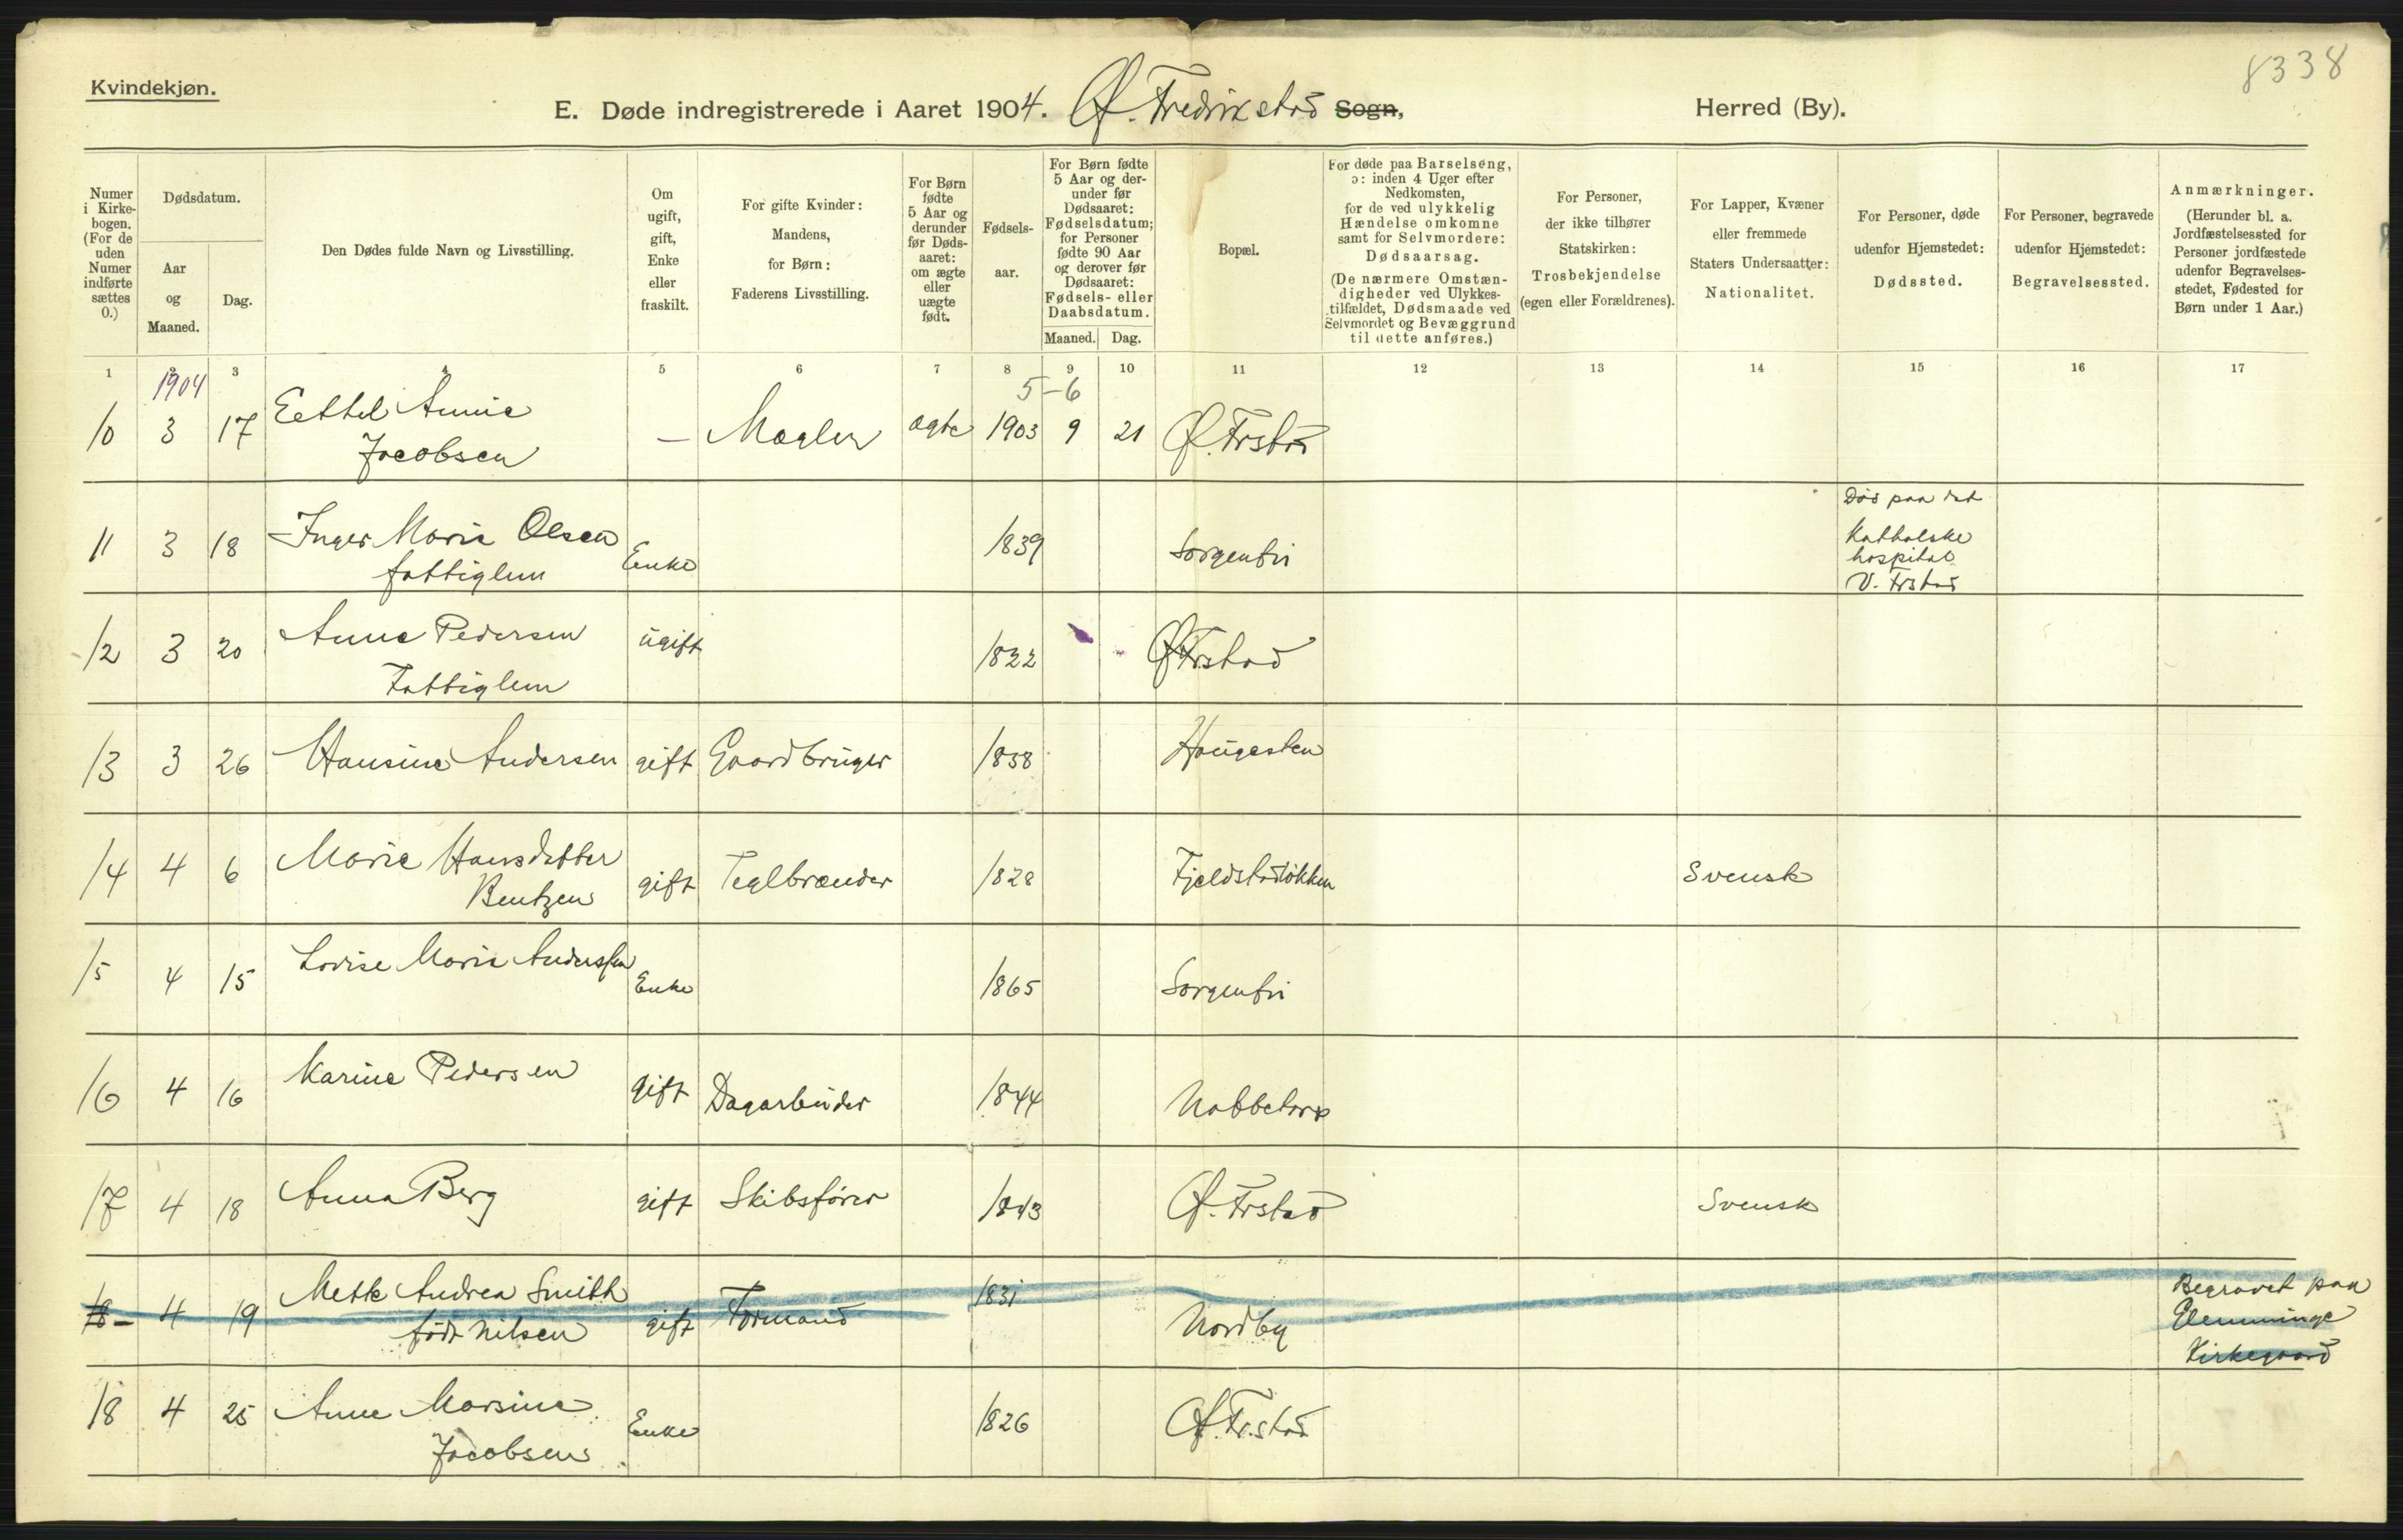 8338
Kvindekjøn.
E. Døde indregistrerede i Aaret 1904. Ø. Fredrikstad Sogn, Herred (By).
Numer i Kirkebogen. (For de uden Numer indførte sættes 0.)
Dødsdatum.
Aar og Maaned.
Dag.
Den Dødes fulde Navn og Livsstilling.
Om ugift, gift, Enke eller fraskilt.
For gifte Kvinder: Mandens, for Børn: Faderens Livsstilling.
For Børn fødte 5 Aar og derunder før Dødsaaret: om ægte eller uægte født.
Fødselsaar.
For Børn fødte 5 Aar og derunder før Dødsaaret: Fødselsdatum; for Personer fødte 90 Aar og derover før Dødsaaret: Fødsels- eller Daabsdatum.
Maaned. Dag.
Bopæl.
For døde paa Barselseng, ɔ: inden 4 Uger efter Nedkomsten, for de ved ulykkelig Hændelse omkomne samt for Selvmordere: Dødsaarsag. (De nærmere Omstændigheder ved Ulykkestilfældet, Dødsmaade ved Selvmordet og Bevæggrund til dette anføres.)
For Personer, der ikke tilhører Statskirken: Trosbekjendelse (egen eller Forældrenes).
For Lapper, Kvæner eller fremmede Staters Undersaatter: Nationalitet.
For Personer, døde udenfor Hjemstedet: Dødssted.
For Personer, begravede udenfor Hjemstedet: Begravelsessted.
Anmærkninger. (Herunder bl. a. Jordfæstelsessted for Personer jordfæstede udenfor Begravelsesstedet, Fødested for Børn under 1 Aar.)
1 2 3 4 5 6 7 8 9 10 11 12 13 14 15 16 17
1904
5-6
10 3 17 Eethel Annie Jacobsen — Mægler ægte 1903 9 21 Ø. Frstad
11 3 18 Inger Marie Olsen fattiglem Enke 1839 Sorgenfri Død paa det Katholske hospital V. Frstad
12 3 20 Anne Pedersen Fattiglem ugift 1822 Ø Frstad
13 3 26 Hansine Andersen gift Gaardbruger 1838 Haugesten
14 4 6 Marie Hansdatter Bentzen gift Teglbrænder 1828 Fjeldstadløkken Svensk
15 4 15 Lovise Marie Anderssen Enke 1865 Sorgenfri
16 4 16 Karine Pedersen gift Dagarbeider 1844 Nabbetorp
17 4 18 Anna Berg gift Skibsfører 1843 Ø. Frstad Svensk
18 — 4 19 Mette Andrea Smith født Nilsen gift Formand 1831 Nordby Begravet paa Glemminge Kirkegaard
18 4 25 Anne Marsine Jacobsen Enke 1826 Ø. Fr.stad